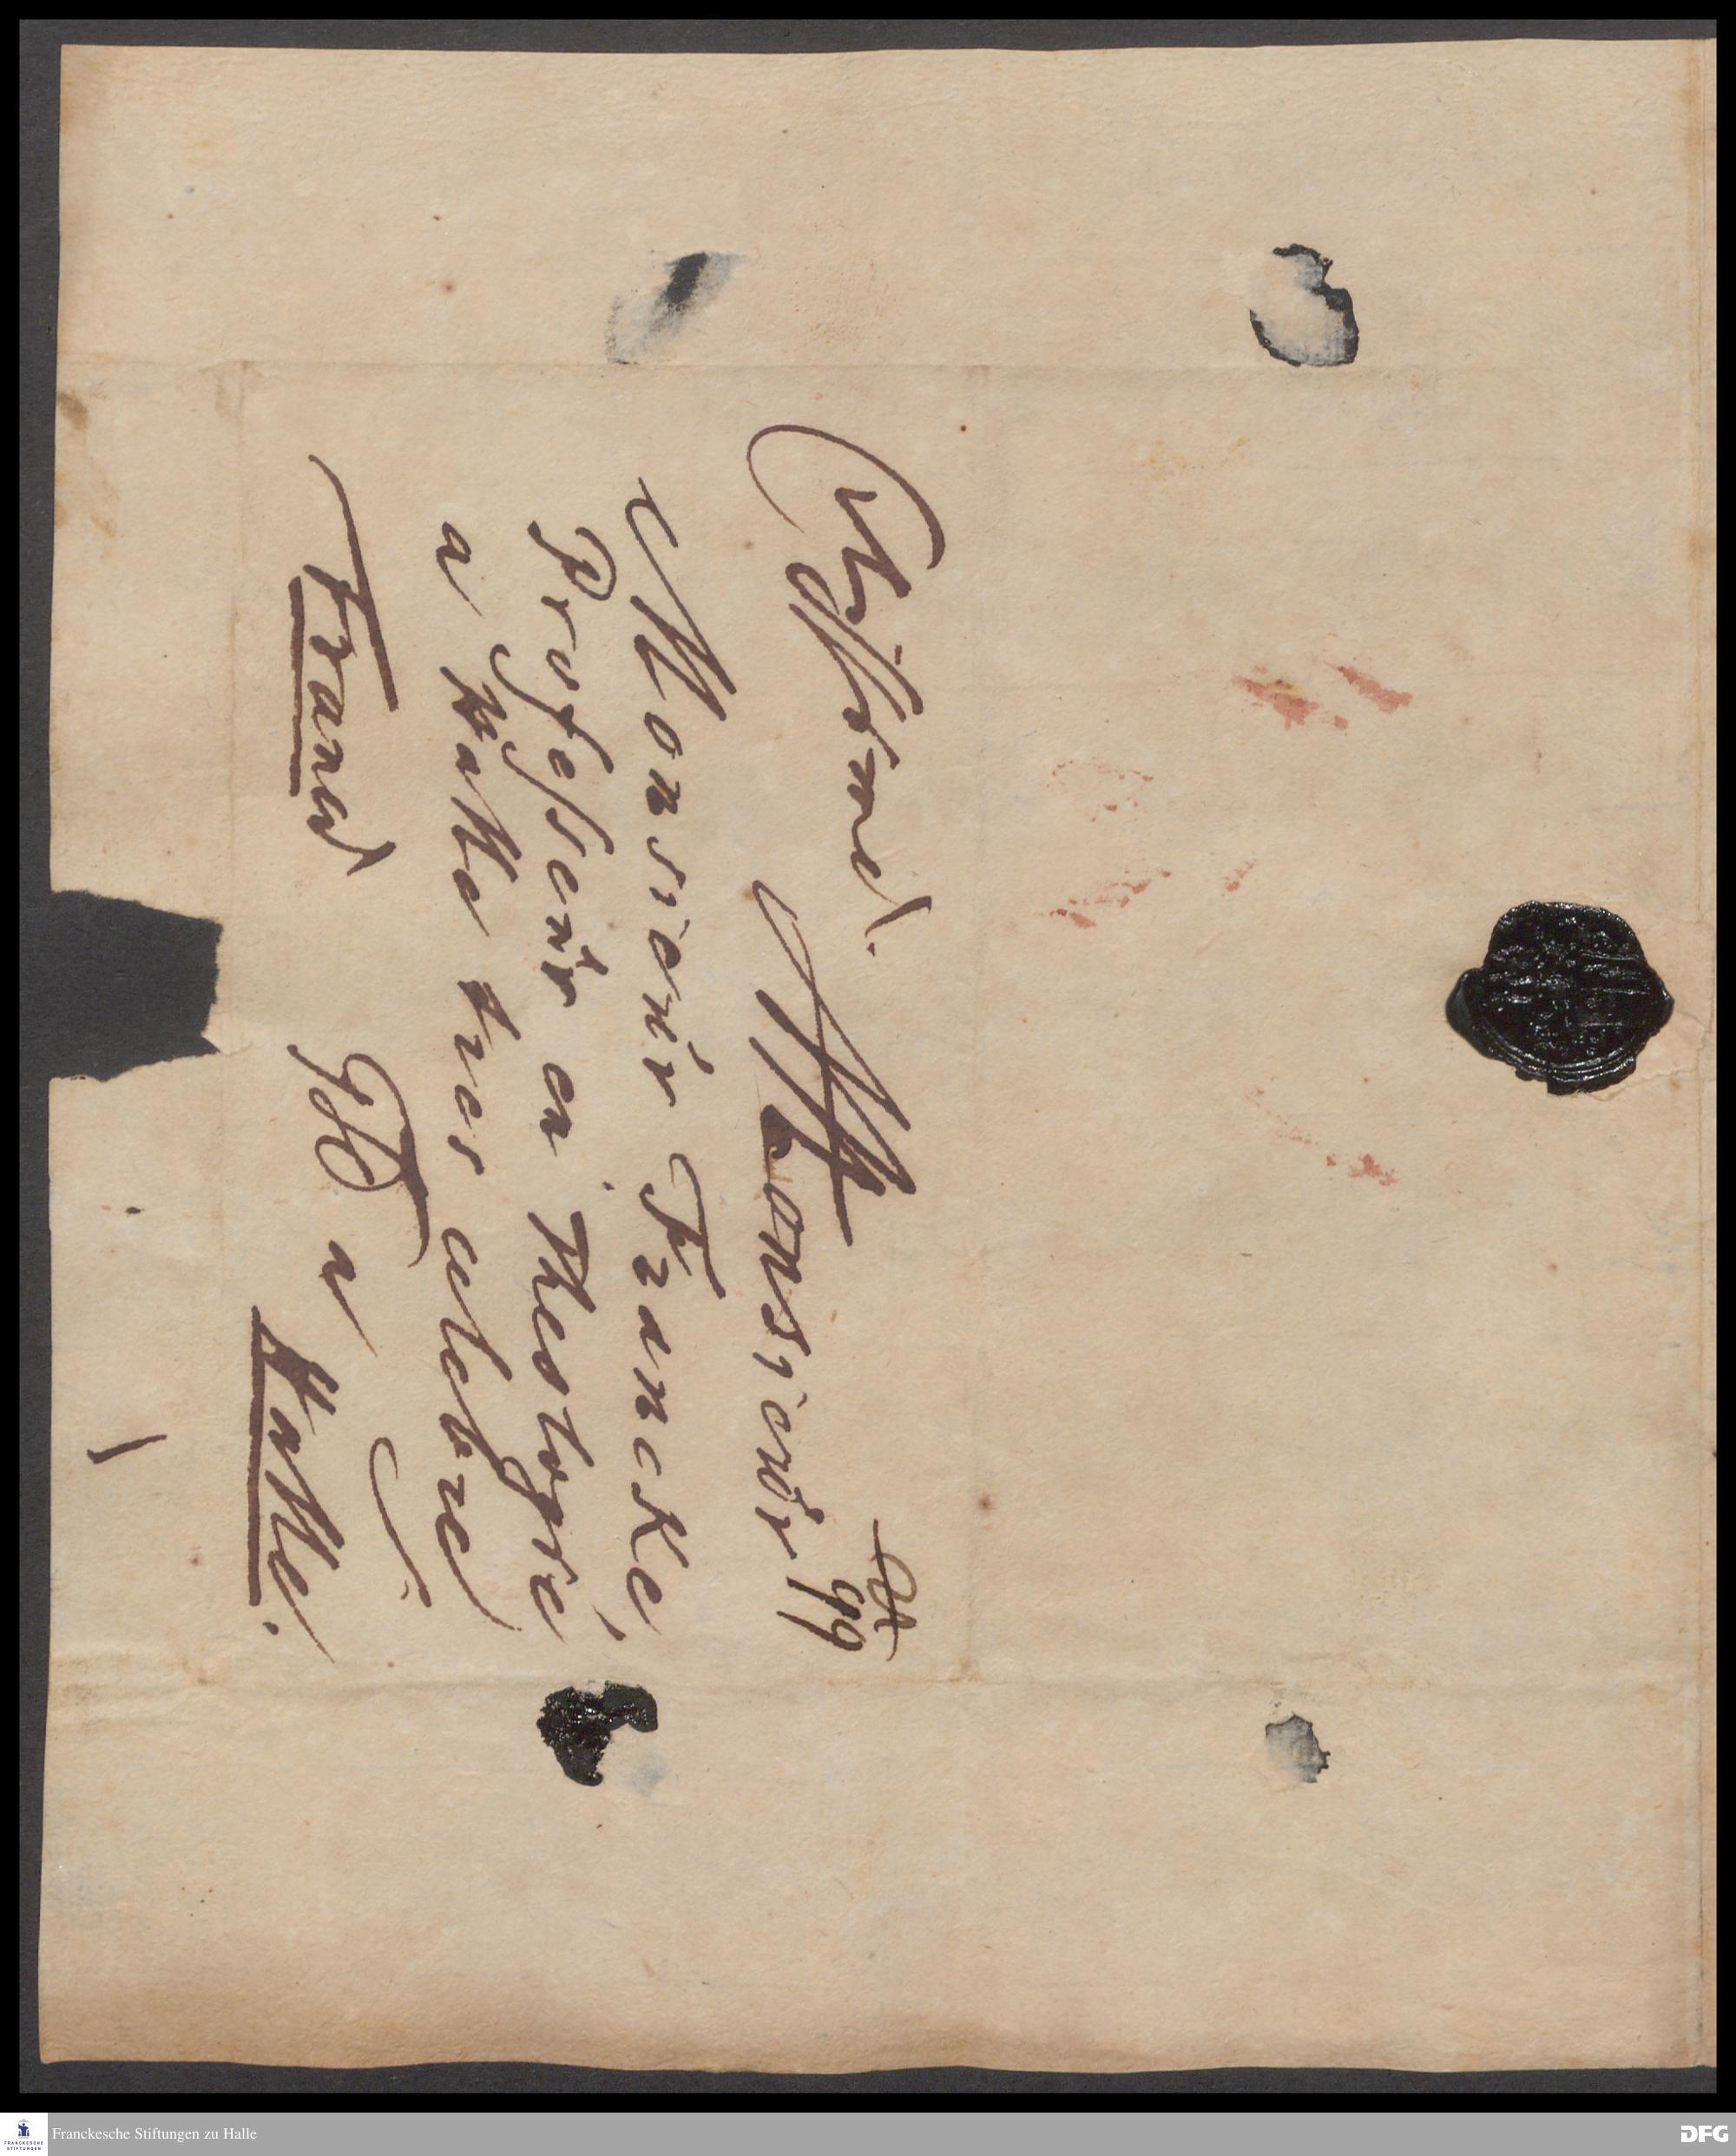 A Monsieur
Monsieur Francke,
Professeur en Theologie
a Halle tres celebre
Franco
a Halle.
99
Franckesche Stiftungen zu Halle
FRANCKESCHE
STIFTUNGEN
DFG